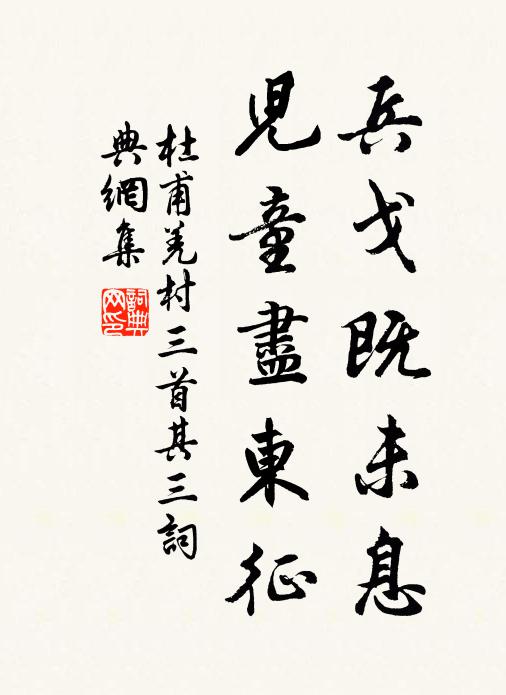 兵戈既未息
児童盡東征
杜甫羌村三首其三詞
典網集
詞典網印